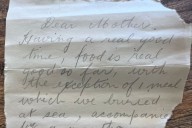 Dear Mother,
Having a real good
time, food is real
good so far, with
the exception of a meal
which we buried
at sea, accompanied